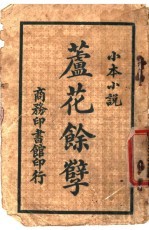 小本小說
蘆花餘孽
商務印書館印行